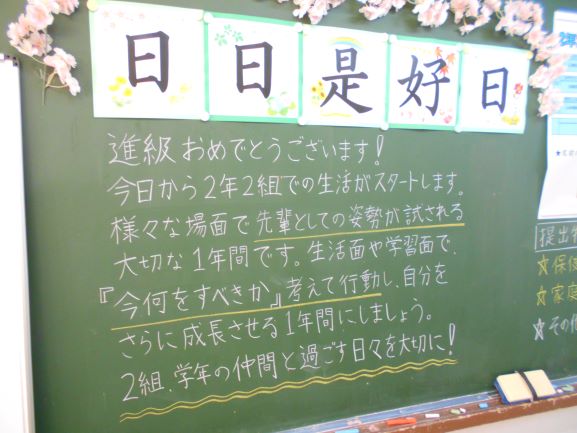 日日是好日
進級おめでとうございます!
今日から2年2組での生活がスタートします。
様々な場面で先輩としての姿勢が試される
大切な1年間です。生活面や学習面で、
『今何をすべきか』考えて行動し、自分を
さらに成長させる1年間にしましょう。
2組、学年の仲間と過ごす日々を大切に!
提出
☆保健
☆家庭
☆その他